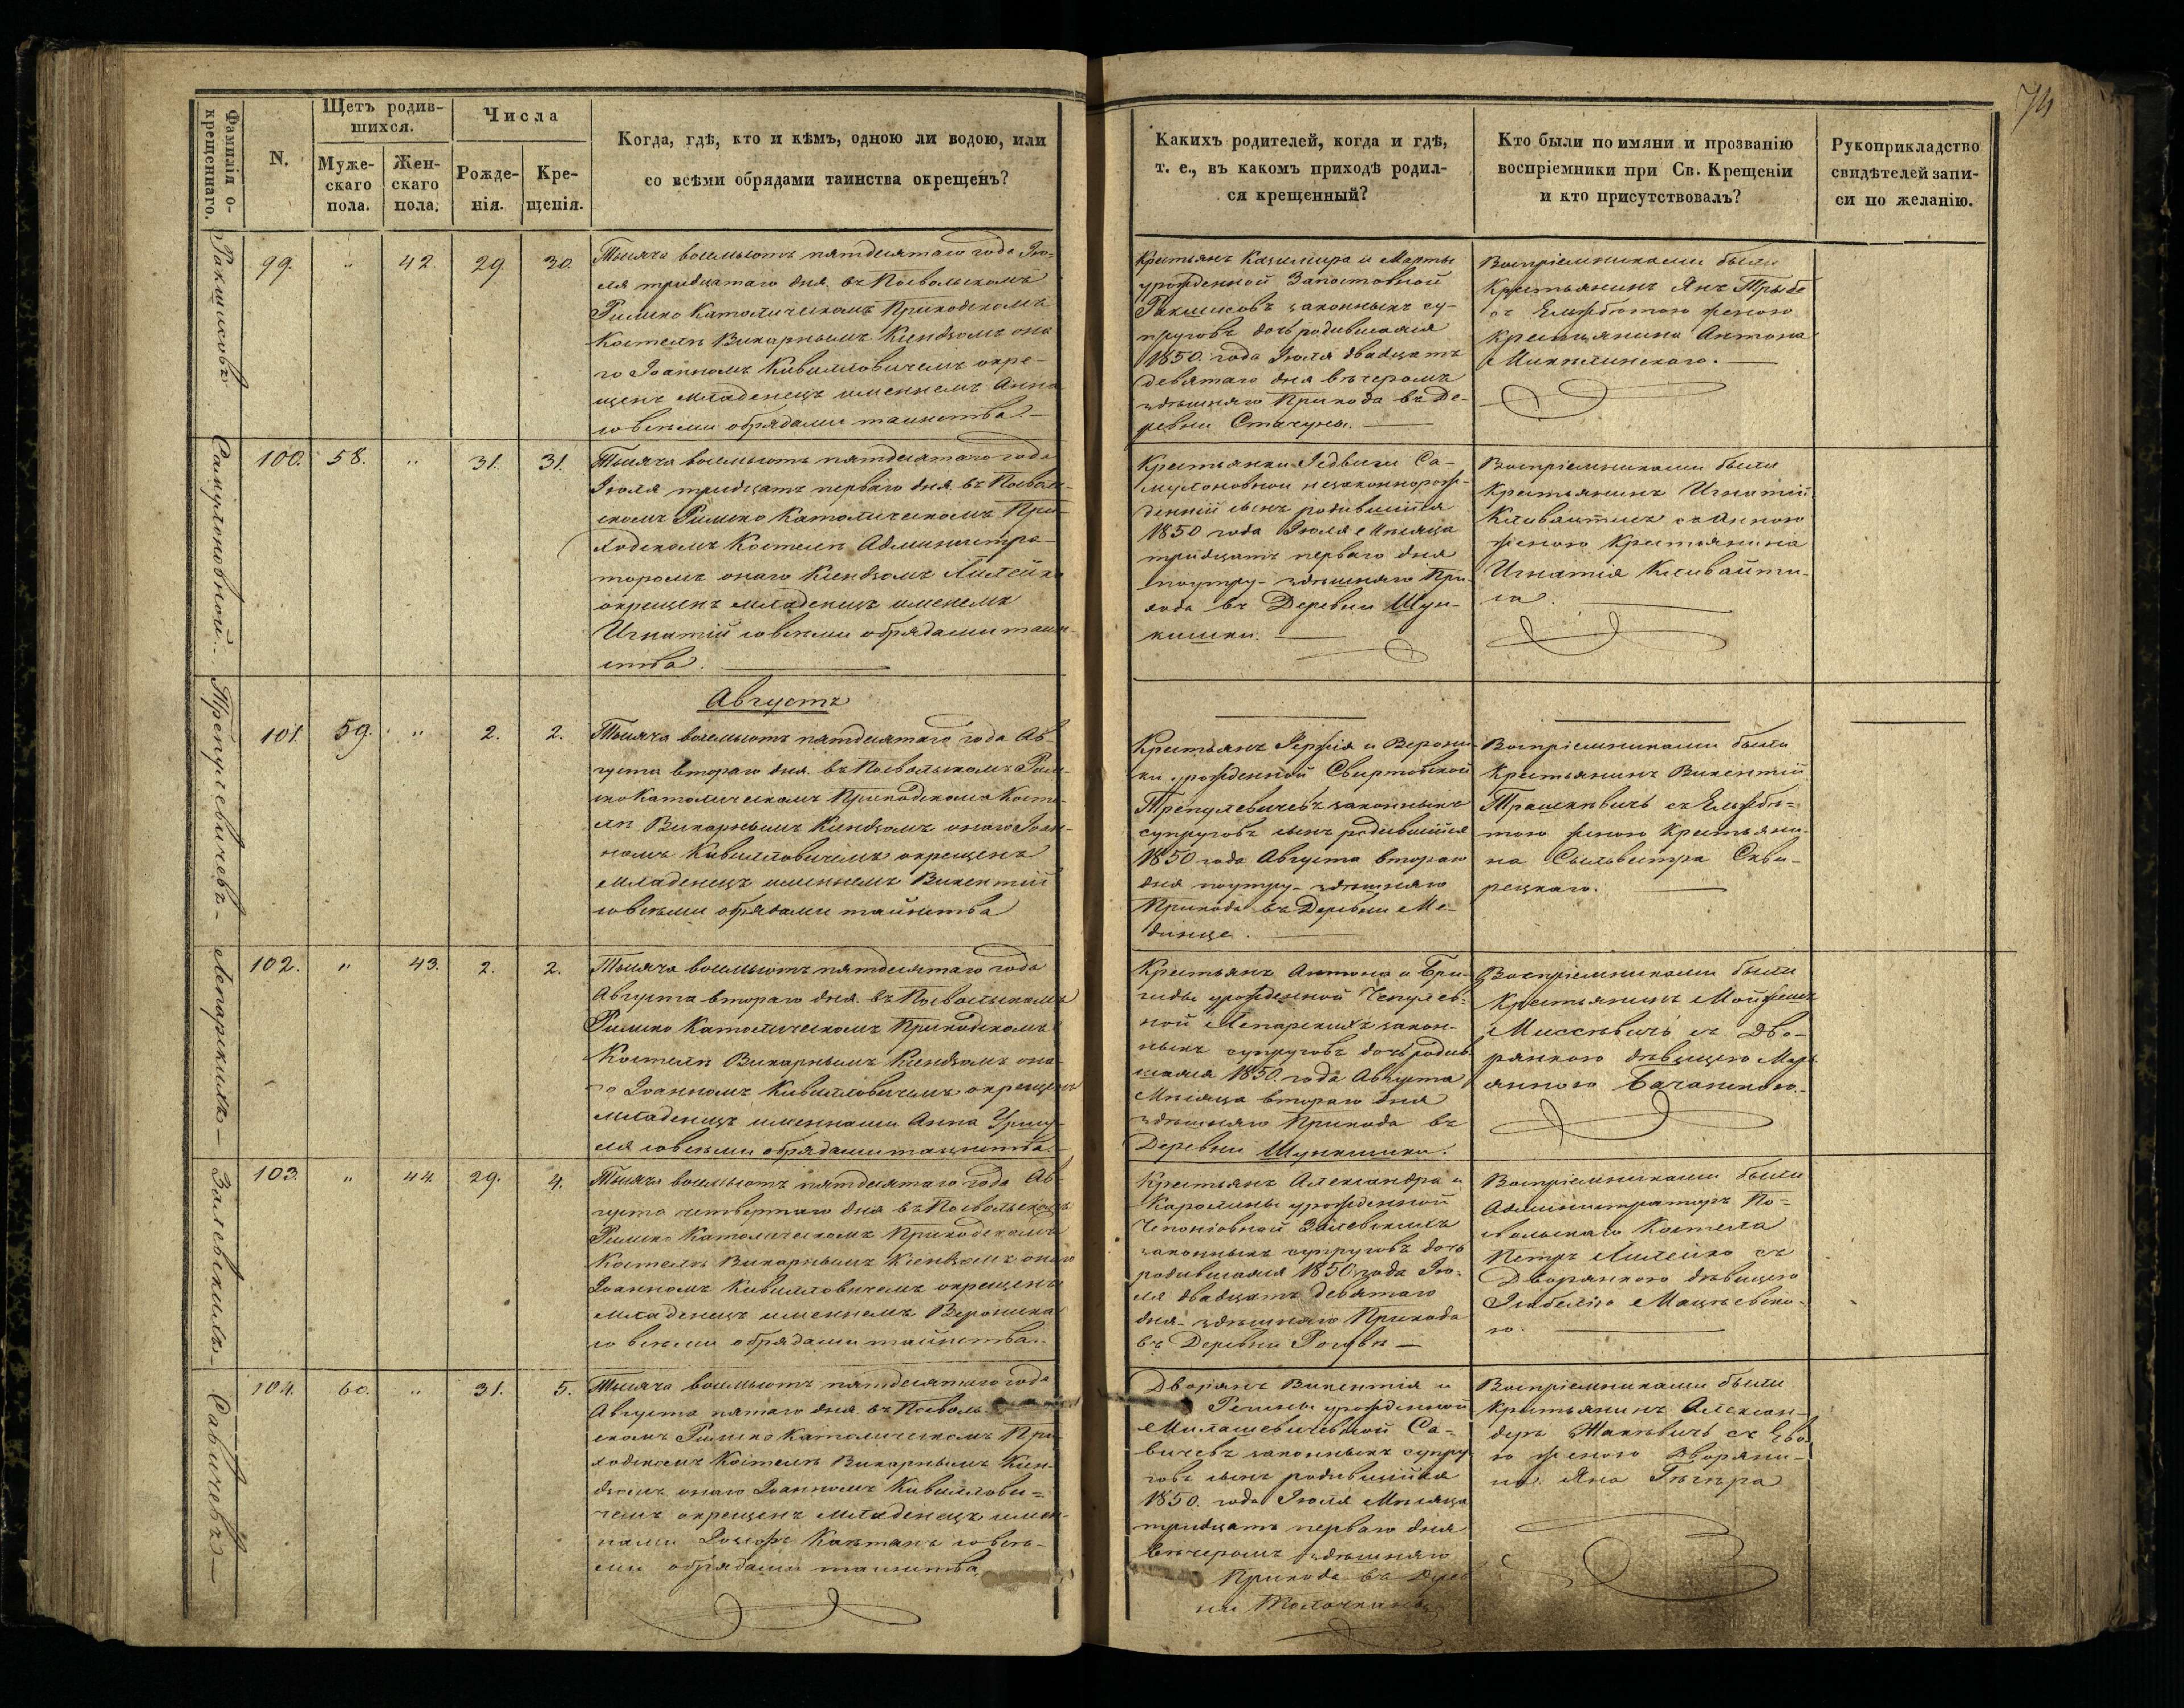 74
Фамилія о-
крещеннаго.
N.
Щетъ родив-
шихся.
Муже-
скаго
пола.
Жен-
скаго
пола.
Числа
Рожде-
нія.
Кре-
щенія.
Когда, гдѣ, кто и кѣмъ, одною ли водою, или
со всѣми обрядами таинства окрещенъ?
Какихъ родителей, когда и гдѣ,
т. е., въ какомъ приходѣ родил-
ся крещенный?
Кто были по имяни и прозванію
воспріемники при Св. Крещеніи
и кто присутствовалъ?
Рукоприкладство
свидѣтелей запи-
си по желанію.
99.
"
42.
29.
30.
Тысяча восемьсотъ пятдесятаго года Ію-
ля тридцатаго дня въ Посвольскомъ
Римско Католическомъ Приходскомъ
Костелѣ Викарнымъ Ксендзомъ она-
го Іоанномъ Кивилловичемъ окре-
щенъ младенецъ именнемъ Анна
со всѣми обрядами таинства.
Крестьянъ Казимира и Марты
урожденной
законныхъ су-
пруговъ дочь родившаяся
1850. года Іюля двадцать
девятаго дня вечеромъ
здѣшняго Прихода въ Де-
ревни Стачуны.
Воспріемниками были
Крестьянинъ Янъ
съ Ельжбетою женою
крестьянина Антона
100.
58.
"
31.
31.
Тысяча восемьсотъ пятдесятаго года
Іюля тридцать перваго дня въ Посволь-
скомъ Римско Католическомъ При-
ходскомъ Костелѣ Администра-
торомъ онаго Ксендзомъ Лилейко
окрещенъ младенецъ именемъ
Игнатій со всѣми обрядами таин-
ства.
Крестьянки Ядвиги Са-
мулоновной незаконнорож-
денній сынъ родившійся
1850 года Іюля Мѣсяца
тридцать перваго дня
поутру здѣшняго При-
хода въ Деревни Шун-
кишки.
Воспріемниками были
Крестьянинъ Игнатій
съ Анною
женою Крестьянина
Игнатія
Августъ
101.
59.
"
2.
2.
Тысяча восемьсотъ пятдесятаго года Ав-
густа втораго дня въ Посвольскомъ Рим-
ско Католическомъ Приходскомъ Косте-
лѣ Викарнымъ Ксендзомъ онаго Іоан-
номъ Кивилловичемъ окрещенъ
младенецъ именнемъ Викентій
со всѣми обрядами таинства
Крестьянъ Іержія и Верони-
ки урожденной Свиртовской
Трепулевичевъ законныхъ
супруговъ сынъ родившійся
1850 года Августа втораго
дня поутру здѣшняго
Прихода въ Деревни Ме-
динце.
Воспріемниками были
Крестьянинъ Викентій
Трашкѣвичъ съ Ельжбѣ-
тою женою Крестьяни-
на Сыльвестра Скви-
рецкаго.
102.
"
43.
2.
2.
Тысяча восемьсотъ пятдесятаго года
Августа втораго дня въ Посвольскомъ
Римско Католическомъ Приходскомъ
Костелѣ Викарнымъ Ксендзомъ она-
го Іоанномъ Кивилловичемъ окрещенъ
младенецъ именнами Анна Уршу-
ля со всѣми обрядами таинства.
Крестьянъ Антона и Бри-
гиды урожденной Чепулев-
ной Лепарскихъ закон-
ныхъ супруговъ дочь родив-
шаяся 1850. года Августа
Мѣсяца втораго дня
здѣшняго Прихода въ
Деревни Шункишки.
Воспріемниками были
Крестьянинъ Мойжешъ
Миссѣвичъ съ Дво-
рянкою дѣвицею Марь-
янною
103.
"
44.
29.
4.
Тысяча восемьсотъ пятдесятаго года Ав-
густа четвертаго дня въ Посвольскомъ
Римско Католическомъ Приходскомъ
Костелѣ Викарнымъ Ксендзомъ онаго
Іоанномъ Кивилловичемъ окрещенъ
младенецъ именнемъ Вероника
со всѣми обрядами таинства.
Крестьянъ Александра и
Каролины урожденной
Чепонювной Залевскихъ
законныхъ супруговъ дочь
родившаяся 1850 года Ію-
ля двадцать девятаго
дня здѣшняго Прихода
въ Деревни
Воспріемниками были
Администраторъ По-
свольскаго Костела
Петръ Лилейко съ
Дворянкою дѣвицею
Изабелею Мацѣевско-
ю.
104.
60.
"
31.
5.
Тысяча восемьсотъ пятдесятаго года
Августа пятаго дня въ Посволь-
скомъ Римско Католическомъ При-
ходскомъ Костелѣ Викарнымъ Ксен-
дзомъ онаго Іоанномъ Кивиллови-
чемъ окрещенъ младенецъ имен-
нами Іозефъ Каэтанъ со всѣ-
ми обрядами таинства
Дворянъ Викентія и
урожденной
Милашевичевной Са-
вичевъ законныхъ супру-
говъ сынъ родившійся
1850. года Іюля Мѣсяца
тридцать перваго дня
вечеромъ здѣшняго
Прихода въ Дерев-
ни
Воспріемниками были
Крестьянинъ Алексан-
деръ съ Ево-
ю женою Дворяни-
на Яна
Самулоновной
Трепулевичевъ
Лепарскихъ
Залевскихъ
Савичевъ